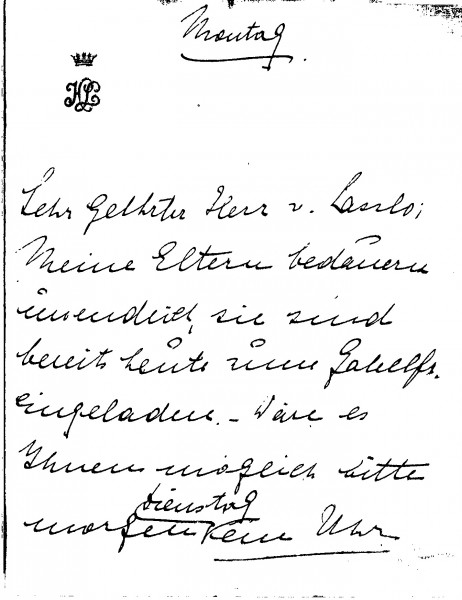 Montag.
HL
Sehr Geehrter Herr v. Laszlo;
Meine Eltern bedauern
unendlich, sie sind
bereits heute zum Gabelfr.
eingeladen. – Wäre es
Ihnen möglich bitte
Dienstag
morgen Uhr